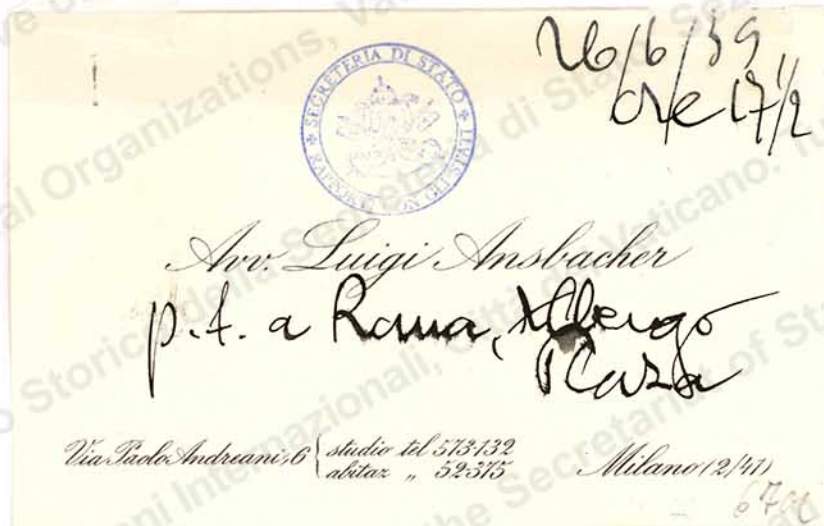 26/6/39
ore 17 1/2
SECRETERIA DI STATO
RAPPORTI CON GLI STATI
Avv. Luigi Ansbacher
p.t. a Roma, Albergo
Plaza
Via Paolo Andreani, 6 { studio tel 573-132
abitaz „ 52-375
Milano (2/41)